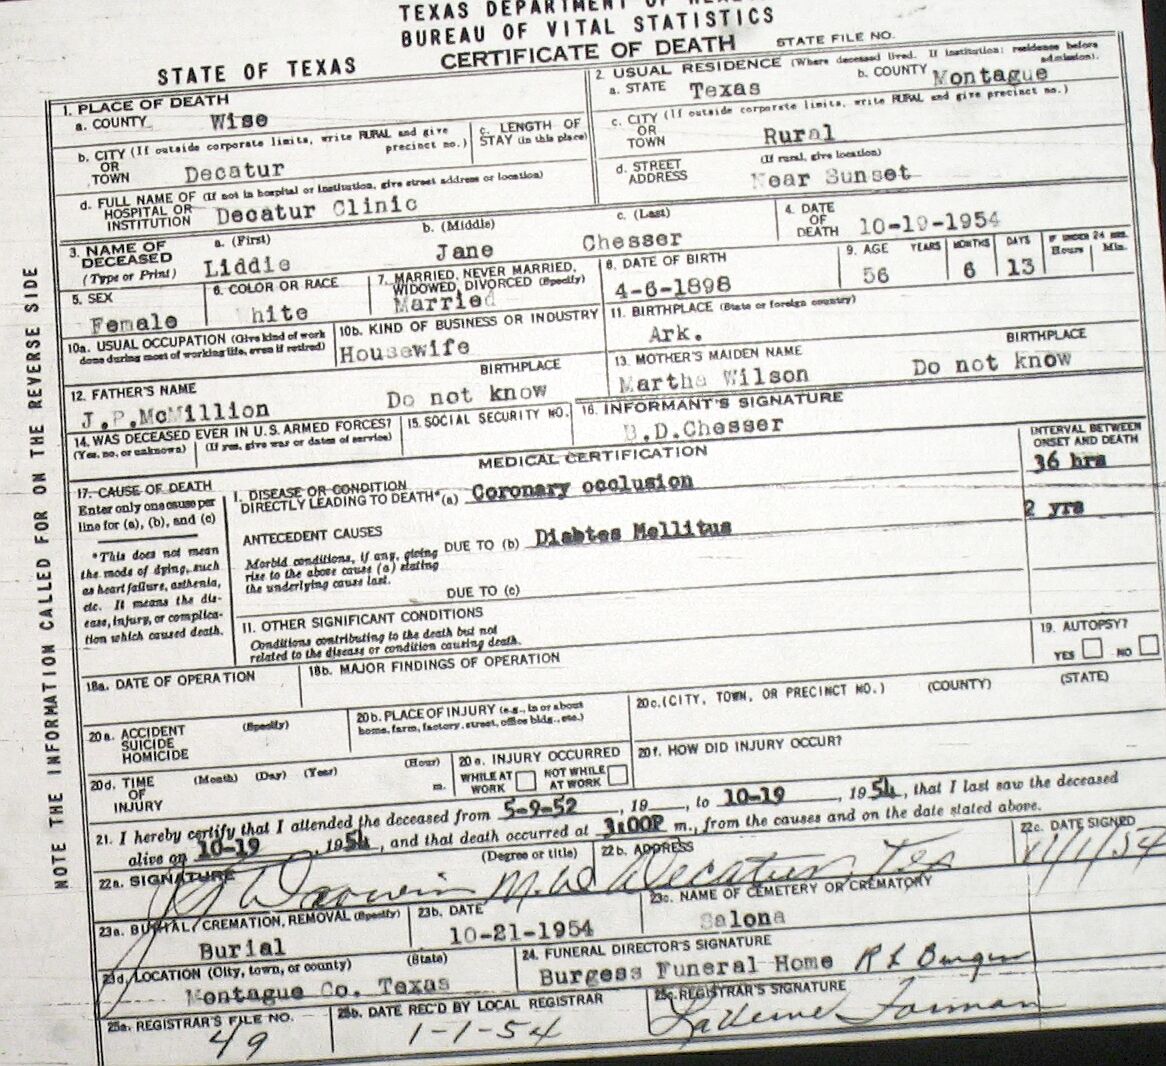 TEXAS DEPARTMENT OF
BUREAU OF VITAL STATISTICS
STATE OF TEXAS CERTIFICATE OF DEATH STATE FILE NO.
1. PLACE OF DEATH
a. COUNTY Wise
2. USUAL RESIDENCE (Where deceased lived. If institution: residence before admission).
a. STATE Texas b. COUNTY Montague
b. CITY (If outside corporate limits, write RURAL and give precinct no.)
OR
TOWN Decatur
c. LENGTH OF STAY (in this place)
c. CITY (If outside corporate limits, write RURAL and give precinct no.)
OR
TOWN Rural
d. FULL NAME OF (If not in hospital or institution, give street address or location)
HOSPITAL OR
INSTITUTION Decatur Clinic
d. STREET (If rural, give location)
ADDRESS Near Sunset
3. NAME OF DECEASED
(Type or Print)
a. (First) b. (Middle) c. (Last)
Liddie Jane Chesser
4. DATE OF DEATH 10-19-1954
5. SEX
Female
6. COLOR OR RACE
hite
7. MARRIED, NEVER MARRIED, WIDOWED, DIVORCED (Specify)
Married
8. DATE OF BIRTH
4-6-1898
9. AGE YEARS MONTHS DAYS IF UNDER 24 HRS. Hours Min.
56 6 13
10a. USUAL OCCUPATION (Give kind of work done during most of working life, even if retired)
10b. KIND OF BUSINESS OR INDUSTRY
Housewife
11. BIRTHPLACE (State or foreign country)
Ark.
12. FATHER'S NAME BIRTHPLACE
J.P.McMillion Do not know
13. MOTHER'S MAIDEN NAME BIRTHPLACE
Martha Wilson Do not know
14. WAS DECEASED EVER IN U.S. ARMED FORCES?
(Yes, no, or unknown) (If yes, give war or dates of service)
15. SOCIAL SECURITY NO.
16. INFORMANT'S SIGNATURE
B.D.Chesser
MEDICAL CERTIFICATION
INTERVAL BETWEEN ONSET AND DEATH
17. CAUSE OF DEATH
Enter only one cause per line for (a), (b), and (c)
*This does not mean the mode of dying, such as heart failure, asthenia, etc. It means the disease, injury, or complication which caused death.
I. DISEASE OR CONDITION
DIRECTLY LEADING TO DEATH* (a) Coronary occlusion 36 hrs
ANTECEDENT CAUSES
Morbid conditions, if any, giving rise to the above cause (a) stating the underlying cause last.
DUE TO (b) Diabtes Mellitus 2 yrs
DUE TO (c)
11. OTHER SIGNIFICANT CONDITIONS
Conditions contributing to the death but not related to the disease or condition causing death.
18a. DATE OF OPERATION
18b. MAJOR FINDINGS OF OPERATION
19. AUTOPSY?
YES NO
20a. ACCIDENT (Specify)
SUICIDE
HOMICIDE
20b. PLACE OF INJURY (e.g., in or about home, farm, factory, street, office bldg., etc.)
20c. (CITY, TOWN, OR PRECINCT NO.) (COUNTY) (STATE)
20d. TIME OF INJURY (Month) (Day) (Year) (Hour) m.
20e. INJURY OCCURRED
WHILE AT WORK NOT WHILE AT WORK
20f. HOW DID INJURY OCCUR?
21. I hereby certify that I attended the deceased from 5-9-52, 19 , to 10-19, 1954, that I last saw the deceased
alive on 10-19, 1954, and that death occurred at 3:00P m., from the causes and on the date stated above.
22a. SIGNATURE (Degree or title)
M.D
22b. ADDRESS
Decatur, Tex
22c. DATE SIGNED
11/1/54
23a. BURIAL, CREMATION, REMOVAL (Specify)
Burial
23b. DATE
10-21-1954
23c. NAME OF CEMETERY OR CREMATORY
Salona
23d. LOCATION (City, town, or county) (State)
Montague Co. Texas
24. FUNERAL DIRECTOR'S SIGNATURE
Burgess Funeral Home R L Burgess
25a. REGISTRAR'S FILE NO.
49
25b. DATE REC'D BY LOCAL REGISTRAR
1-1-54
25c. REGISTRAR'S SIGNATURE
LaVerne Forman
NOTE THE INFORMATION CALLED FOR ON THE REVERSE SIDE